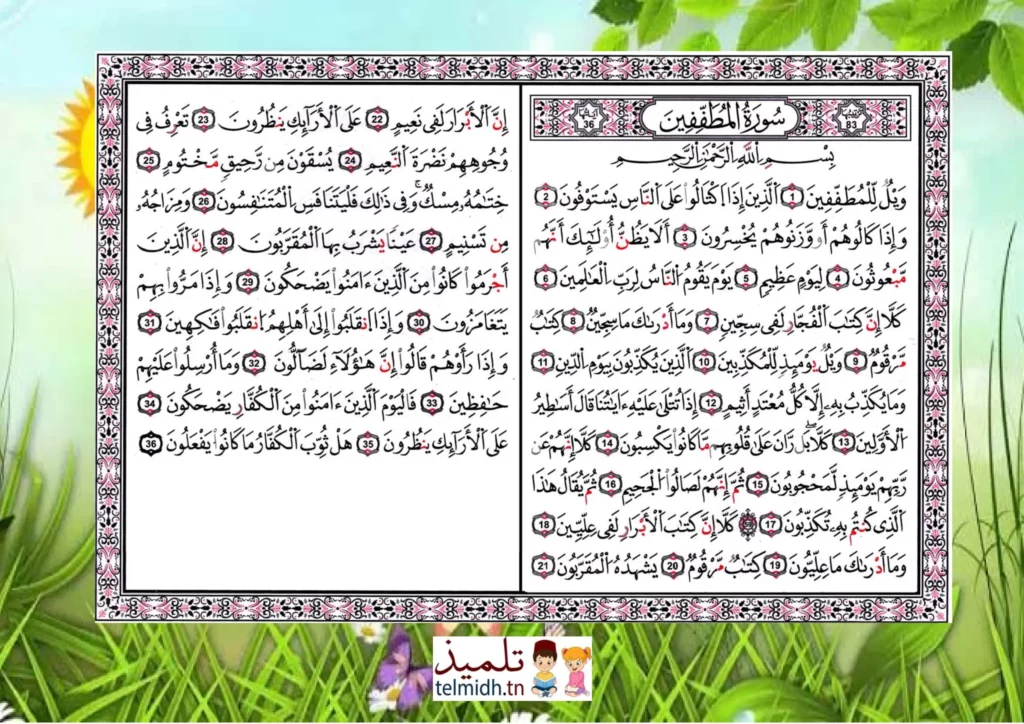 سُورَةُ المُطَفِّفِينَ
83
36
بِسْمِ اللَّهِ الرَّحْمَٰنِ الرَّحِيمِ
وَيْلٌ لِّلْمُطَفِّفِينَ 1 الَّذِينَ إِذَا اكْتَالُوا عَلَى النَّاسِ يَسْتَوْفُونَ 2
وَإِذَا كَالُوهُمْ أَو وَّزَنُوهُمْ يُخْسِرُونَ 3 أَلَا يَظُنُّ أُوْلَٰئِكَ أَنَّهُم
مَّبْعُوثُونَ 4 لِيَوْمٍ عَظِيمٍ 5 يَوْمَ يَقُومُ النَّاسُ لِرَبِّ الْعَالَمِينَ 6
كَلَّا إِنَّ كِتَٰبَ الْفُجَّارِ لَفِي سِجِّينٍ 7 وَمَا أَدْرَىٰكَ مَا سِجِّينٌ 8 كِتَٰبٌ
مَّرْقُومٌ 9 وَيْلٌ يَوْمَئِذٍ لِّلْمُكَذِّبِينَ 10 الَّذِينَ يُكَذِّبُونَ بِيَوْمِ الدِّينِ 11
وَمَا يُكَذِّبُ بِهِ إِلَّا كُلُّ مُعْتَدٍ أَثِيمٍ 12 إِذَا تُتْلَىٰ عَلَيْهِ ءَايَٰتُنَا قَالَ أَسَٰطِيرُ
الْأَوَّلِينَ 13 كَلَّا بَلْ رَانَ عَلَىٰ قُلُوبِهِم مَّا كَانُوا يَكْسِبُونَ 14 كَلَّا إِنَّهُمْ عَن
رَّبِّهِمْ يَوْمَئِذٍ لَّمَحْجُوبُونَ 15 ثُمَّ إِنَّهُمْ لَصَالُوا الْجَحِيمِ 16 ثُمَّ يُقَالُ هَٰذَا
الَّذِي كُنتُم بِهِ تُكَذِّبُونَ 17 كَلَّا إِنَّ كِتَٰبَ الْأَبْرَارِ لَفِي عِلِّيِّينَ 18
وَمَا أَدْرَىٰكَ مَا عِلِّيُّونَ 19 كِتَٰبٌ مَّرْقُومٌ 20 يَشْهَدُهُ الْمُقَرَّبُونَ 21
إِنَّ الْأَبْرَارَ لَفِي نَعِيمٍ 22 عَلَى الْأَرَائِكِ يَنظُرُونَ 23 تَعْرِفُ فِي
وُجُوهِهِمْ نَضْرَةَ النَّعِيمِ 24 يُسْقَوْنَ مِن رَّحِيقٍ مَّخْتُومٍ 25
خِتَٰمُهُ مِسْكٌ وَفِي ذَٰلِكَ فَلْيَتَنَافَسِ الْمُتَنَافِسُونَ 26 وَمِزَاجُهُ
مِن تَسْنِيمٍ 27 عَيْنًا يَشْرَبُ بِهَا الْمُقَرَّبُونَ 28 إِنَّ الَّذِينَ
أَجْرَمُوا كَانُوا مِنَ الَّذِينَ ءَامَنُوا يَضْحَكُونَ 29 وَإِذَا مَرُّوا بِهِمْ
يَتَغَامَزُونَ 30 وَإِذَا انقَلَبُوا إِلَىٰ أَهْلِهِمُ انقَلَبُوا فَٰكِهِينَ 31
وَإِذَا رَأَوْهُمْ قَالُوا إِنَّ هَٰؤُلَاءِ لَضَالُّونَ 32 وَمَا أُرْسِلُوا عَلَيْهِمْ
حَٰفِظِينَ 33 فَالْيَوْمَ الَّذِينَ ءَامَنُوا مِنَ الْكُفَّارِ يَضْحَكُونَ 34
عَلَى الْأَرَائِكِ يَنظُرُونَ 35 هَلْ ثُوِّبَ الْكُفَّارُ مَا كَانُوا يَفْعَلُونَ 36
تلميذ
telmidh.tn